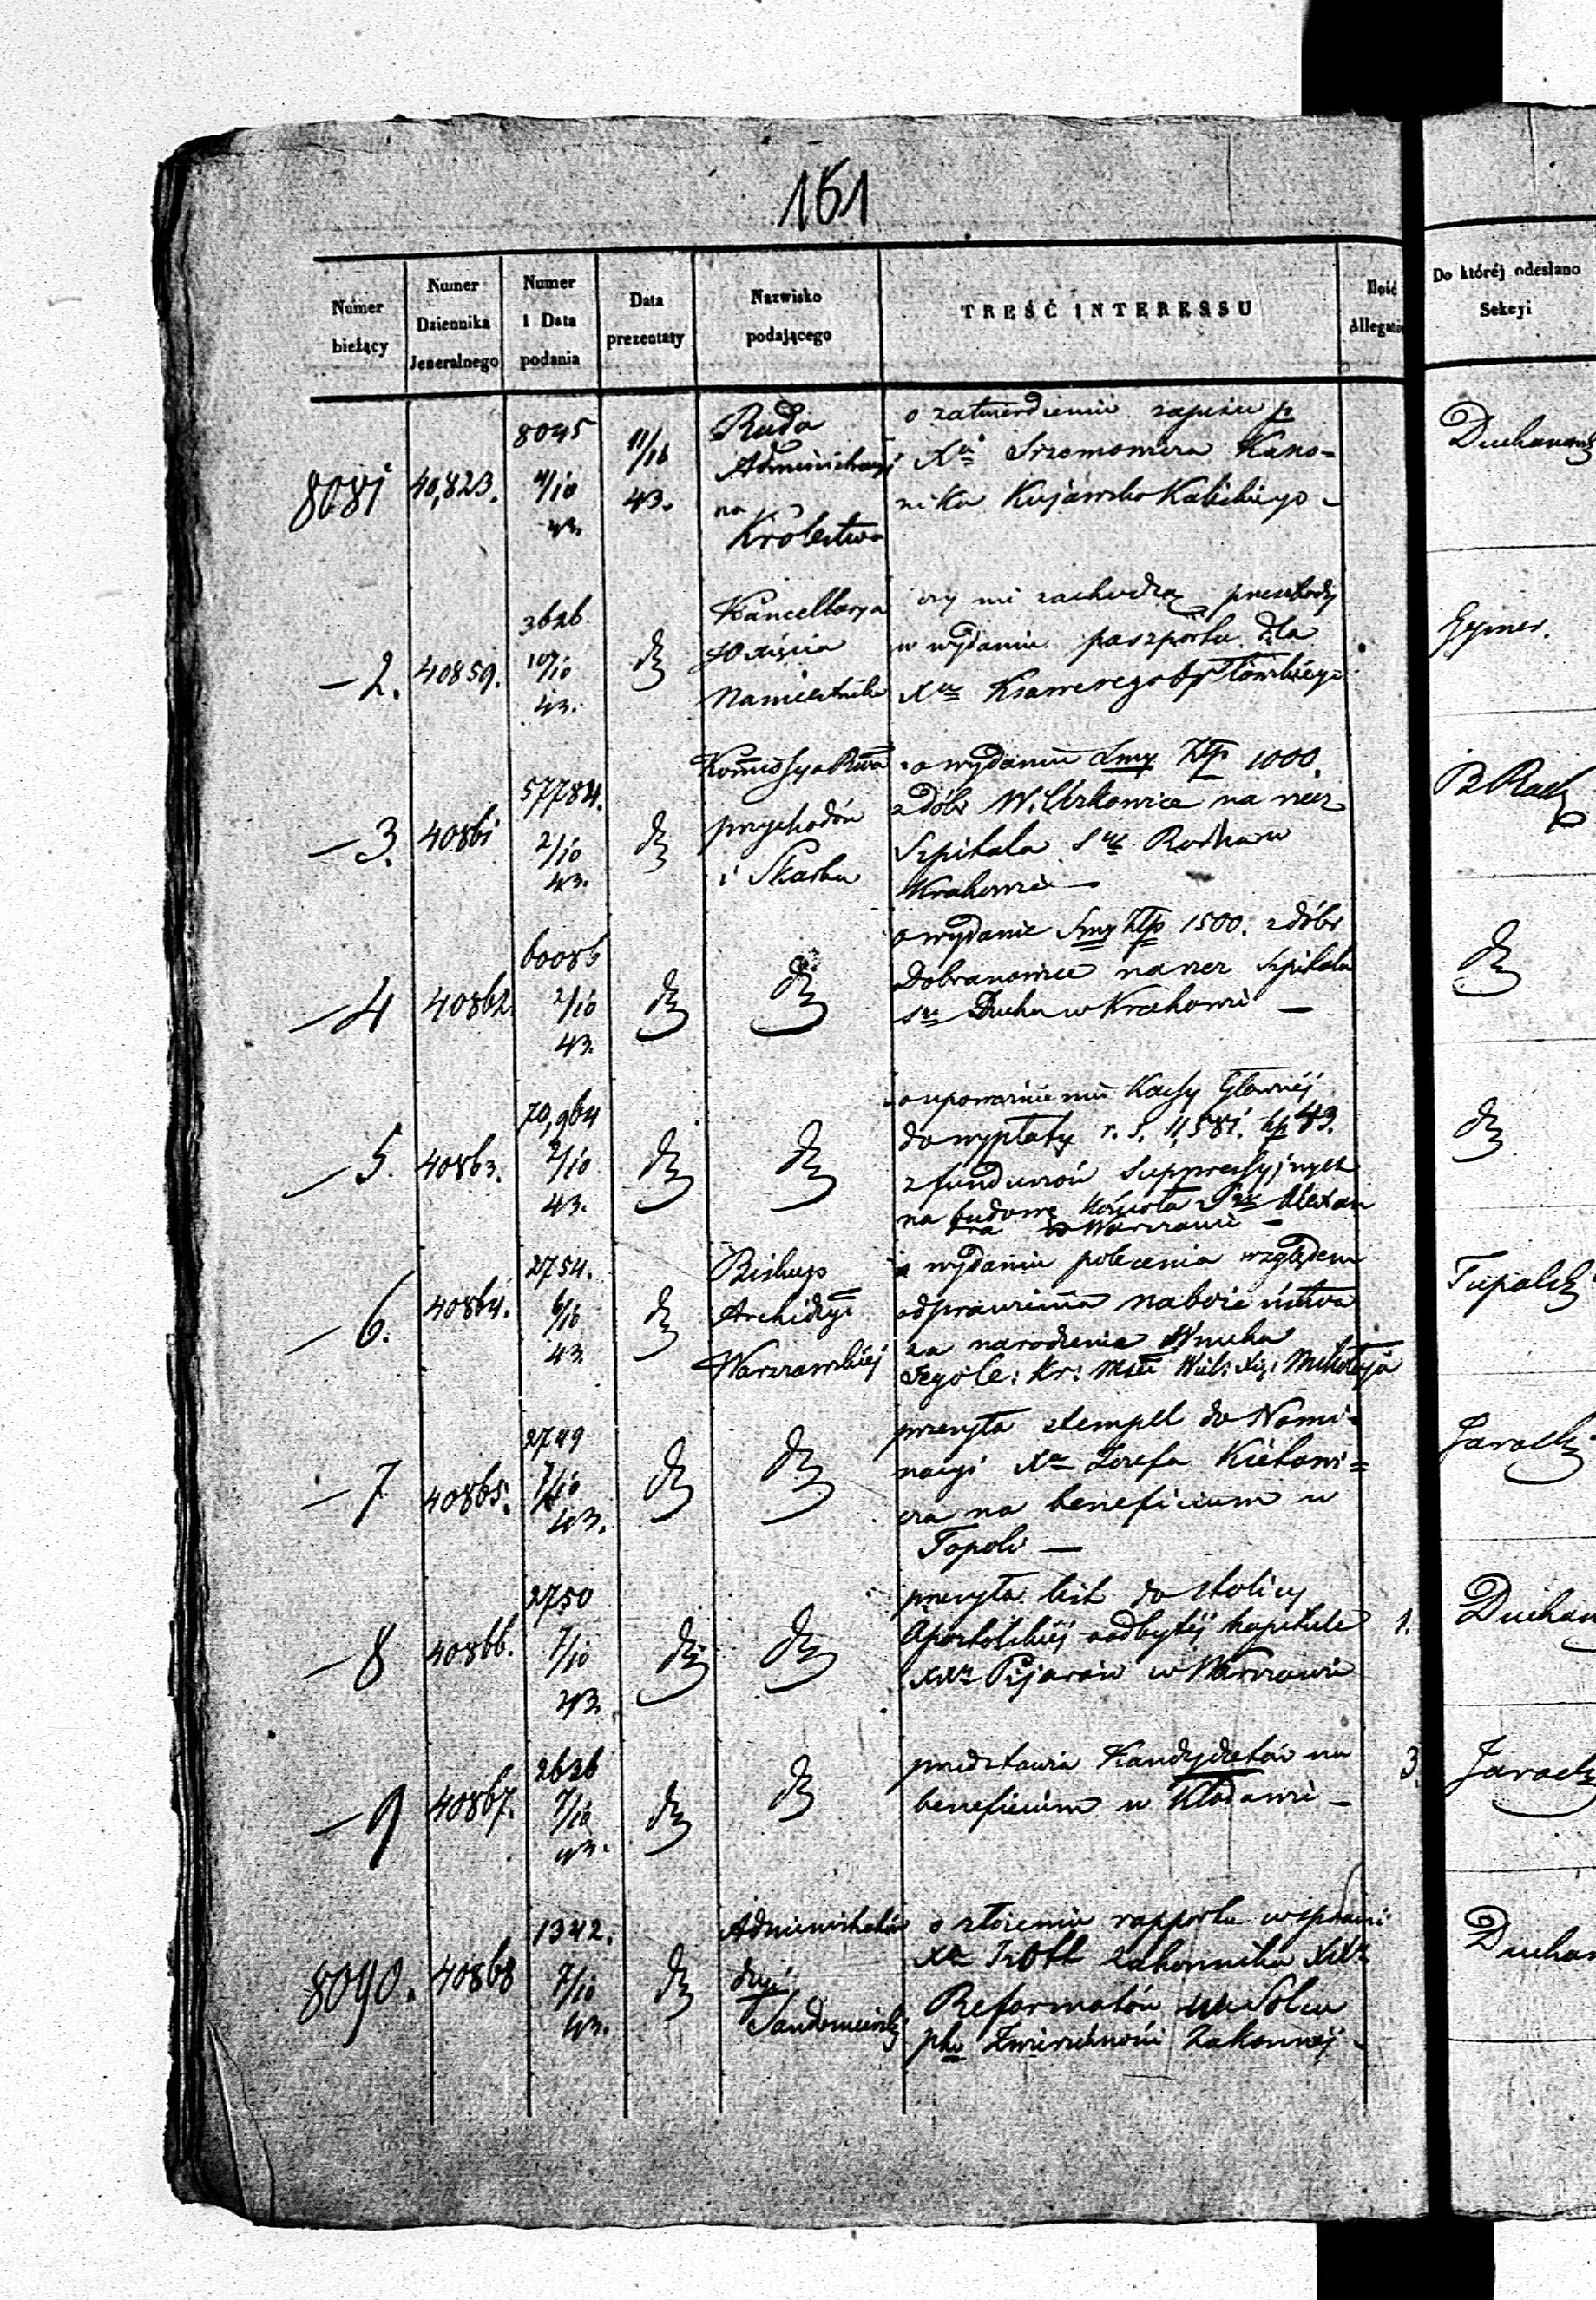 161
Numer bieżący
Numer Dziennika Jeneralnego
Numer i Data podania
Data prezentaty
Nazwisko podającego
TREŚĆ INTERESSU
Ilość Allegatów
Do któréj odesłano Sekcyi
8081 40,823. 8045 4/10 43. 11/10 43.
Rada
Administracyj
na
Królestwa
o zatwierdzenie zapisu p
Xa Kano-
nika Kujawsko Kaliskiego -
-2. 40859. 3626 10/10 43. dto
Kancellarya
JO Xięcia
Namiestnika
czy nie zachodzą przeszkody
w wydaniu paszportu dla
Xa Ksawerego
-3. 40861 57784. 2/10 43. dto
Kommissya Rwa
przychodów
i Skarbu
o wydanie Smy Złp 1000.
z dóbr na rzecz
Szpitala Sgo Rocha w
Krakowie -
-4 40862. 60086 2/10 43. dto dto
o wydanie Smy Złp 1500. z dóbr
Dobranowice na rzecz Szpitala
Sgo Ducha w Krakowie - dto
-5. 40863. 70,964 2/10 43. dto dto
o upoważnienie Kassy Głównéj
do wypłaty r. s. 11,581. kp 43.
z funduszów Suppressyjnych
na budowę Kościoła Sgo Alexan
dra w Warszawie - dto
-6. 40864. 2754. 6/10 43. dto
Biskup
Archidyi
Warszawskiej
o wydanie polecenia względem
odprawienia nabożeństwa
za narodzenie Wnuka
Jego Ce: Kr: Mści Wiel: Xię: Mikołaja
-7 40865. 2749 7/10 43. dto dto
przesyła stempel do Nomi-
nacyi Xa Józefa
cza na beneficium w
Topoli -
-8 40866. 2750 7/10 43. dto dto
przesyła list do stolicy
Apostolskiéj o odbytéj kapitule
XXzy Pijarów w Warszawie
1.
-9 40867. 2636 7/10 43. dto dto
przedstawia Kandydatów na
beneficium w Kłodawie -
3.
8090. 40868 1342. 7/10 43. dto
Administrator
dyi
Sandomirskiéj
o złożenie rapportu w sprawie
Xa Ott zakonnika XXzy
Reformatów w Solcu
pko Zwierzchności Zakonnéj -